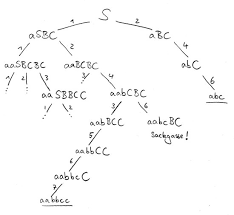 S
1 2
aSBC aBC
1 2 4
aaSBCBC aaBCBC abC
1 2 3 3 4 6
aaSBBCC aabCBC abc
1 2 3 6
aabBCC aabcBC
5 Sackgasse!
aabbCC
6
aabbcC
7
aabbcc